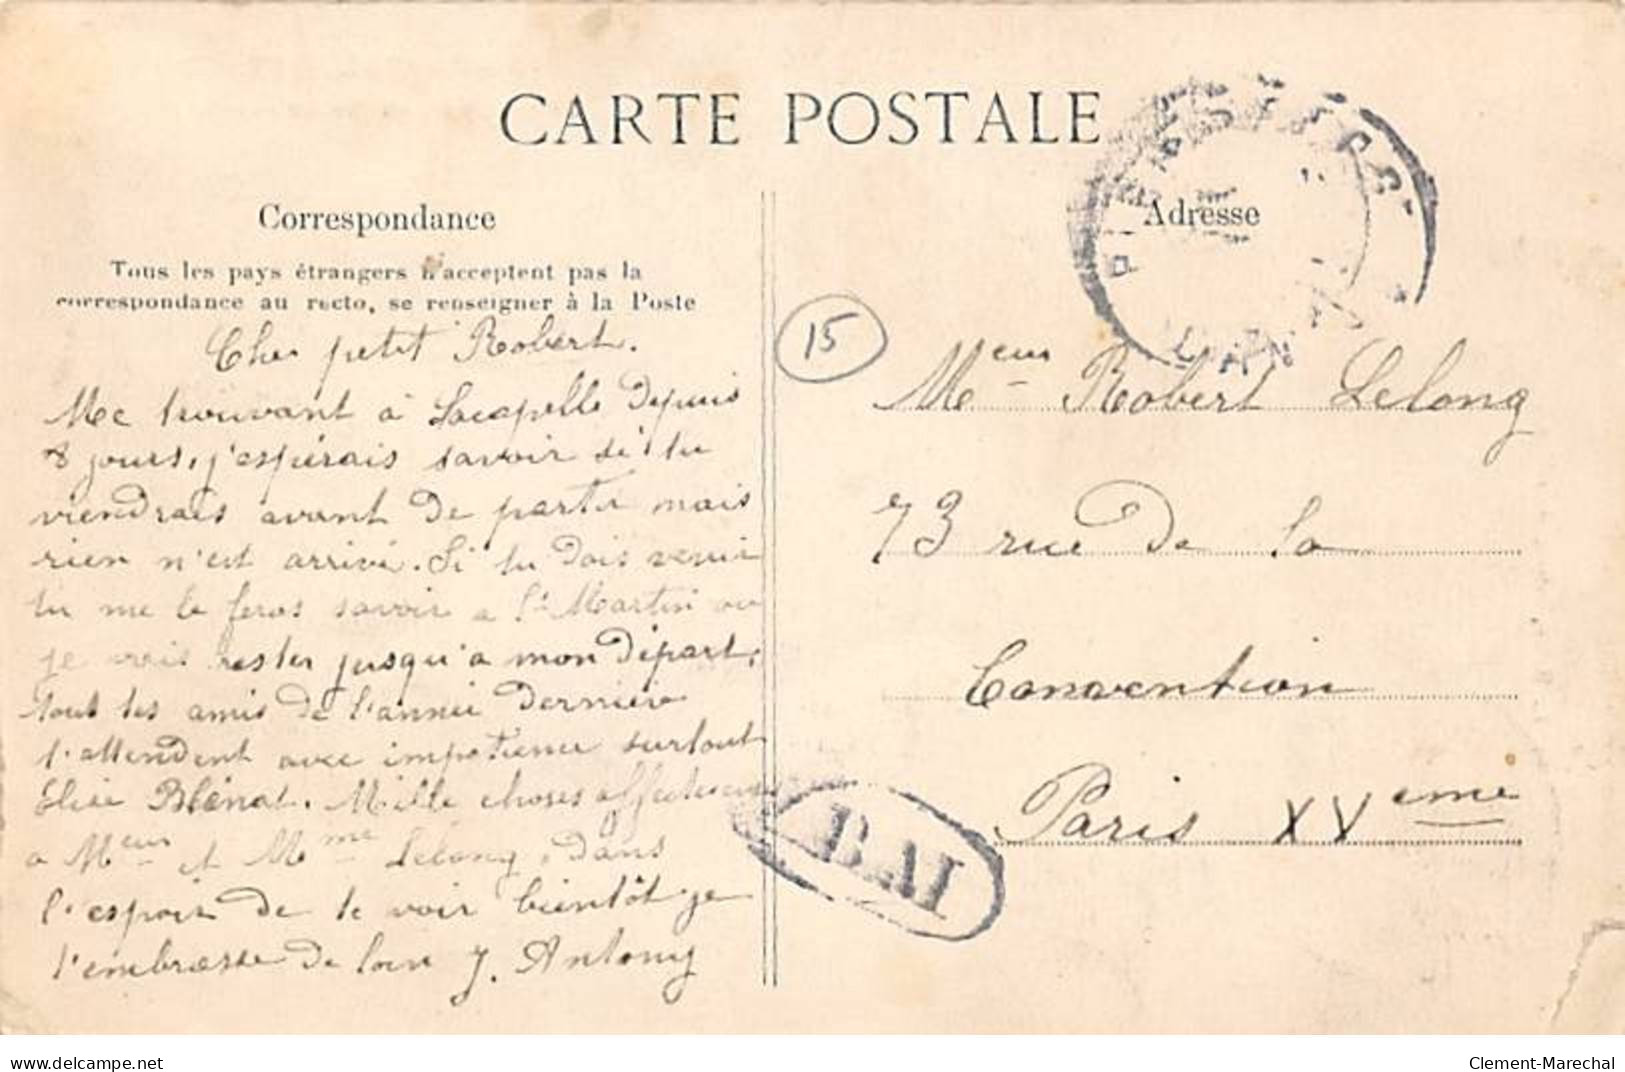 CARTE POSTALE
Correspondance
Tous les pays étrangers n'acceptent pas la
correspondance au recto, se renseigner à la Poste
Cher petit Robert.
Me trouvant à Lacapelle depuis
8 jours, j'espérais savoir si tu
viendrais avant de partir mais
rien n'est arrivé. Si tu dois venir
tu me le feras savoir a St Martin ou
je vais rester jusqu'a mon départ.
Tout les amis de l'année dernière
t'attendent avec impatience surtout
Elise Blénat. Mille choses affectueuses
a Meur et Mme Lelong, dans
l'espoir de te voir bientôt je
t'embrasse de loin J. Antony
15
Adresse
Meur Robert Lelong
73 rue de la
Convention
Paris XVeme
BAI
www.delcampe.net
Clement-Marechal